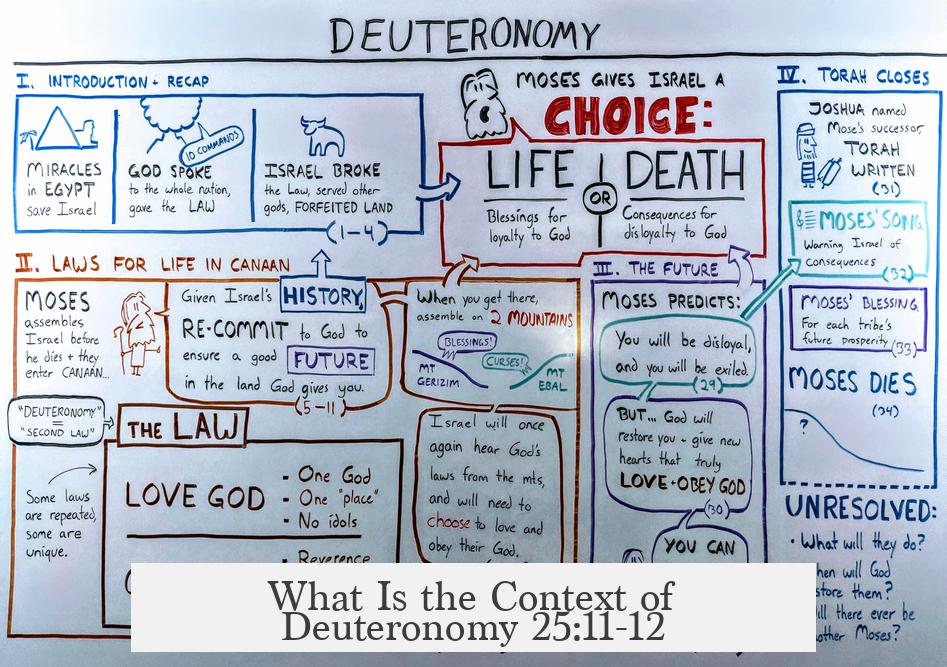 DEUTERONOMY
I. INTRODUCTION + RECAP
MIRACLES
in EGYPT
save Israel
10 COMMANDS
GOD SPOKE
to the whole nation,
gave the LAW
ISRAEL BROKE
the Law, served other
gods, FORFEITED LAND
(1-4)
MOSES GIVES ISRAEL A
CHOICE:
LIFE OR DEATH
Blessings for
loyalty to God
Consequences for
disloyalty to God
II. LAWS FOR LIFE IN CANAAN
MOSES
assembles
Israel before
he dies + they
enter CANAAN...
Given Israel's HISTORY,
RE-COMMIT to God to
ensure a good FUTURE
in the land God gives you.
(5-11)
"DEUTERONOMY"
=
"SECOND LAW"
THE LAW
Some laws
are repeated,
some are
unique.
LOVE GOD
- One God
- One "place"
- No idols
- Reverence
When you get there,
assemble on 2 MOUNTAINS
BLESSINGS!
CURSES!
MT
GERIZIM
MT
EBAL
Israel will once
again hear God's
laws from the mts,
and will need to
choose to love and
obey their God.
III. THE FUTURE
MOSES PREDICTS:
You will be disloyal,
and you will be exiled.
(29)
BUT... God will
restore you + give new
hearts that truly
LOVE + OBEY GOD
(30)
YOU CAN
IV. TORAH CLOSES
JOSHUA named
Mose's successor,
TORAH
WRITTEN
(31)
MOSES' SONG
Warning Israel of
consequences
(32)
MOSES' BLESSING
For each tribe's
future prosperity
(33)
MOSES DIES
(34)
?
UNRESOLVED:
• What will they do?
God
them?
there ever be
Moses?
What Is the Context of
Deuteronomy 25:11-12